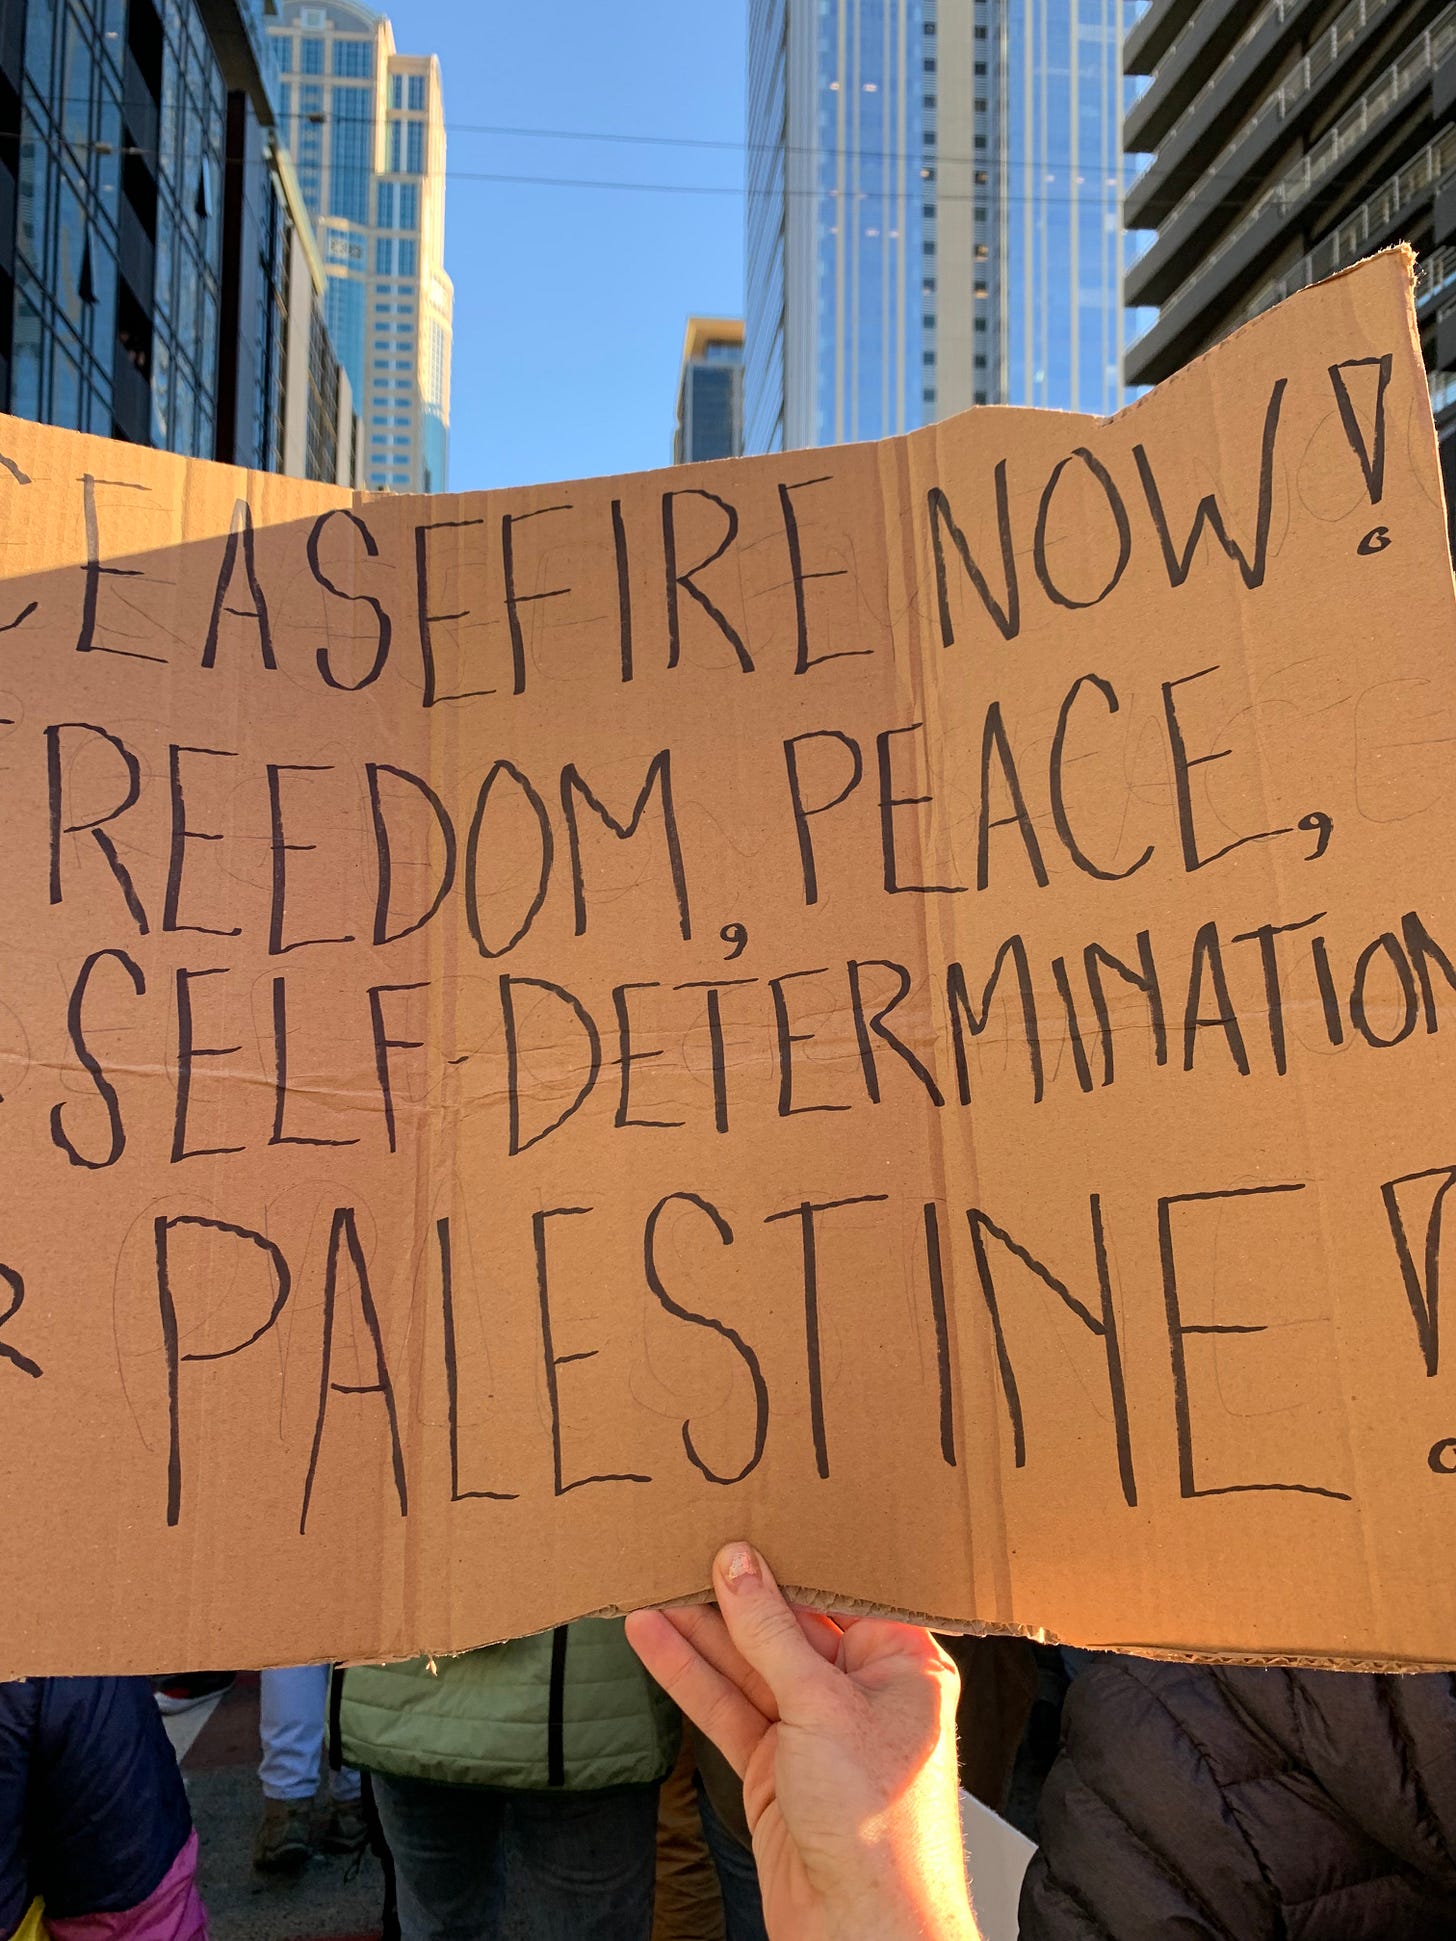 CEASEFIRE NOW!
FREEDOM, PEACE,
SELF-DETERMINATION
PALESTINE!